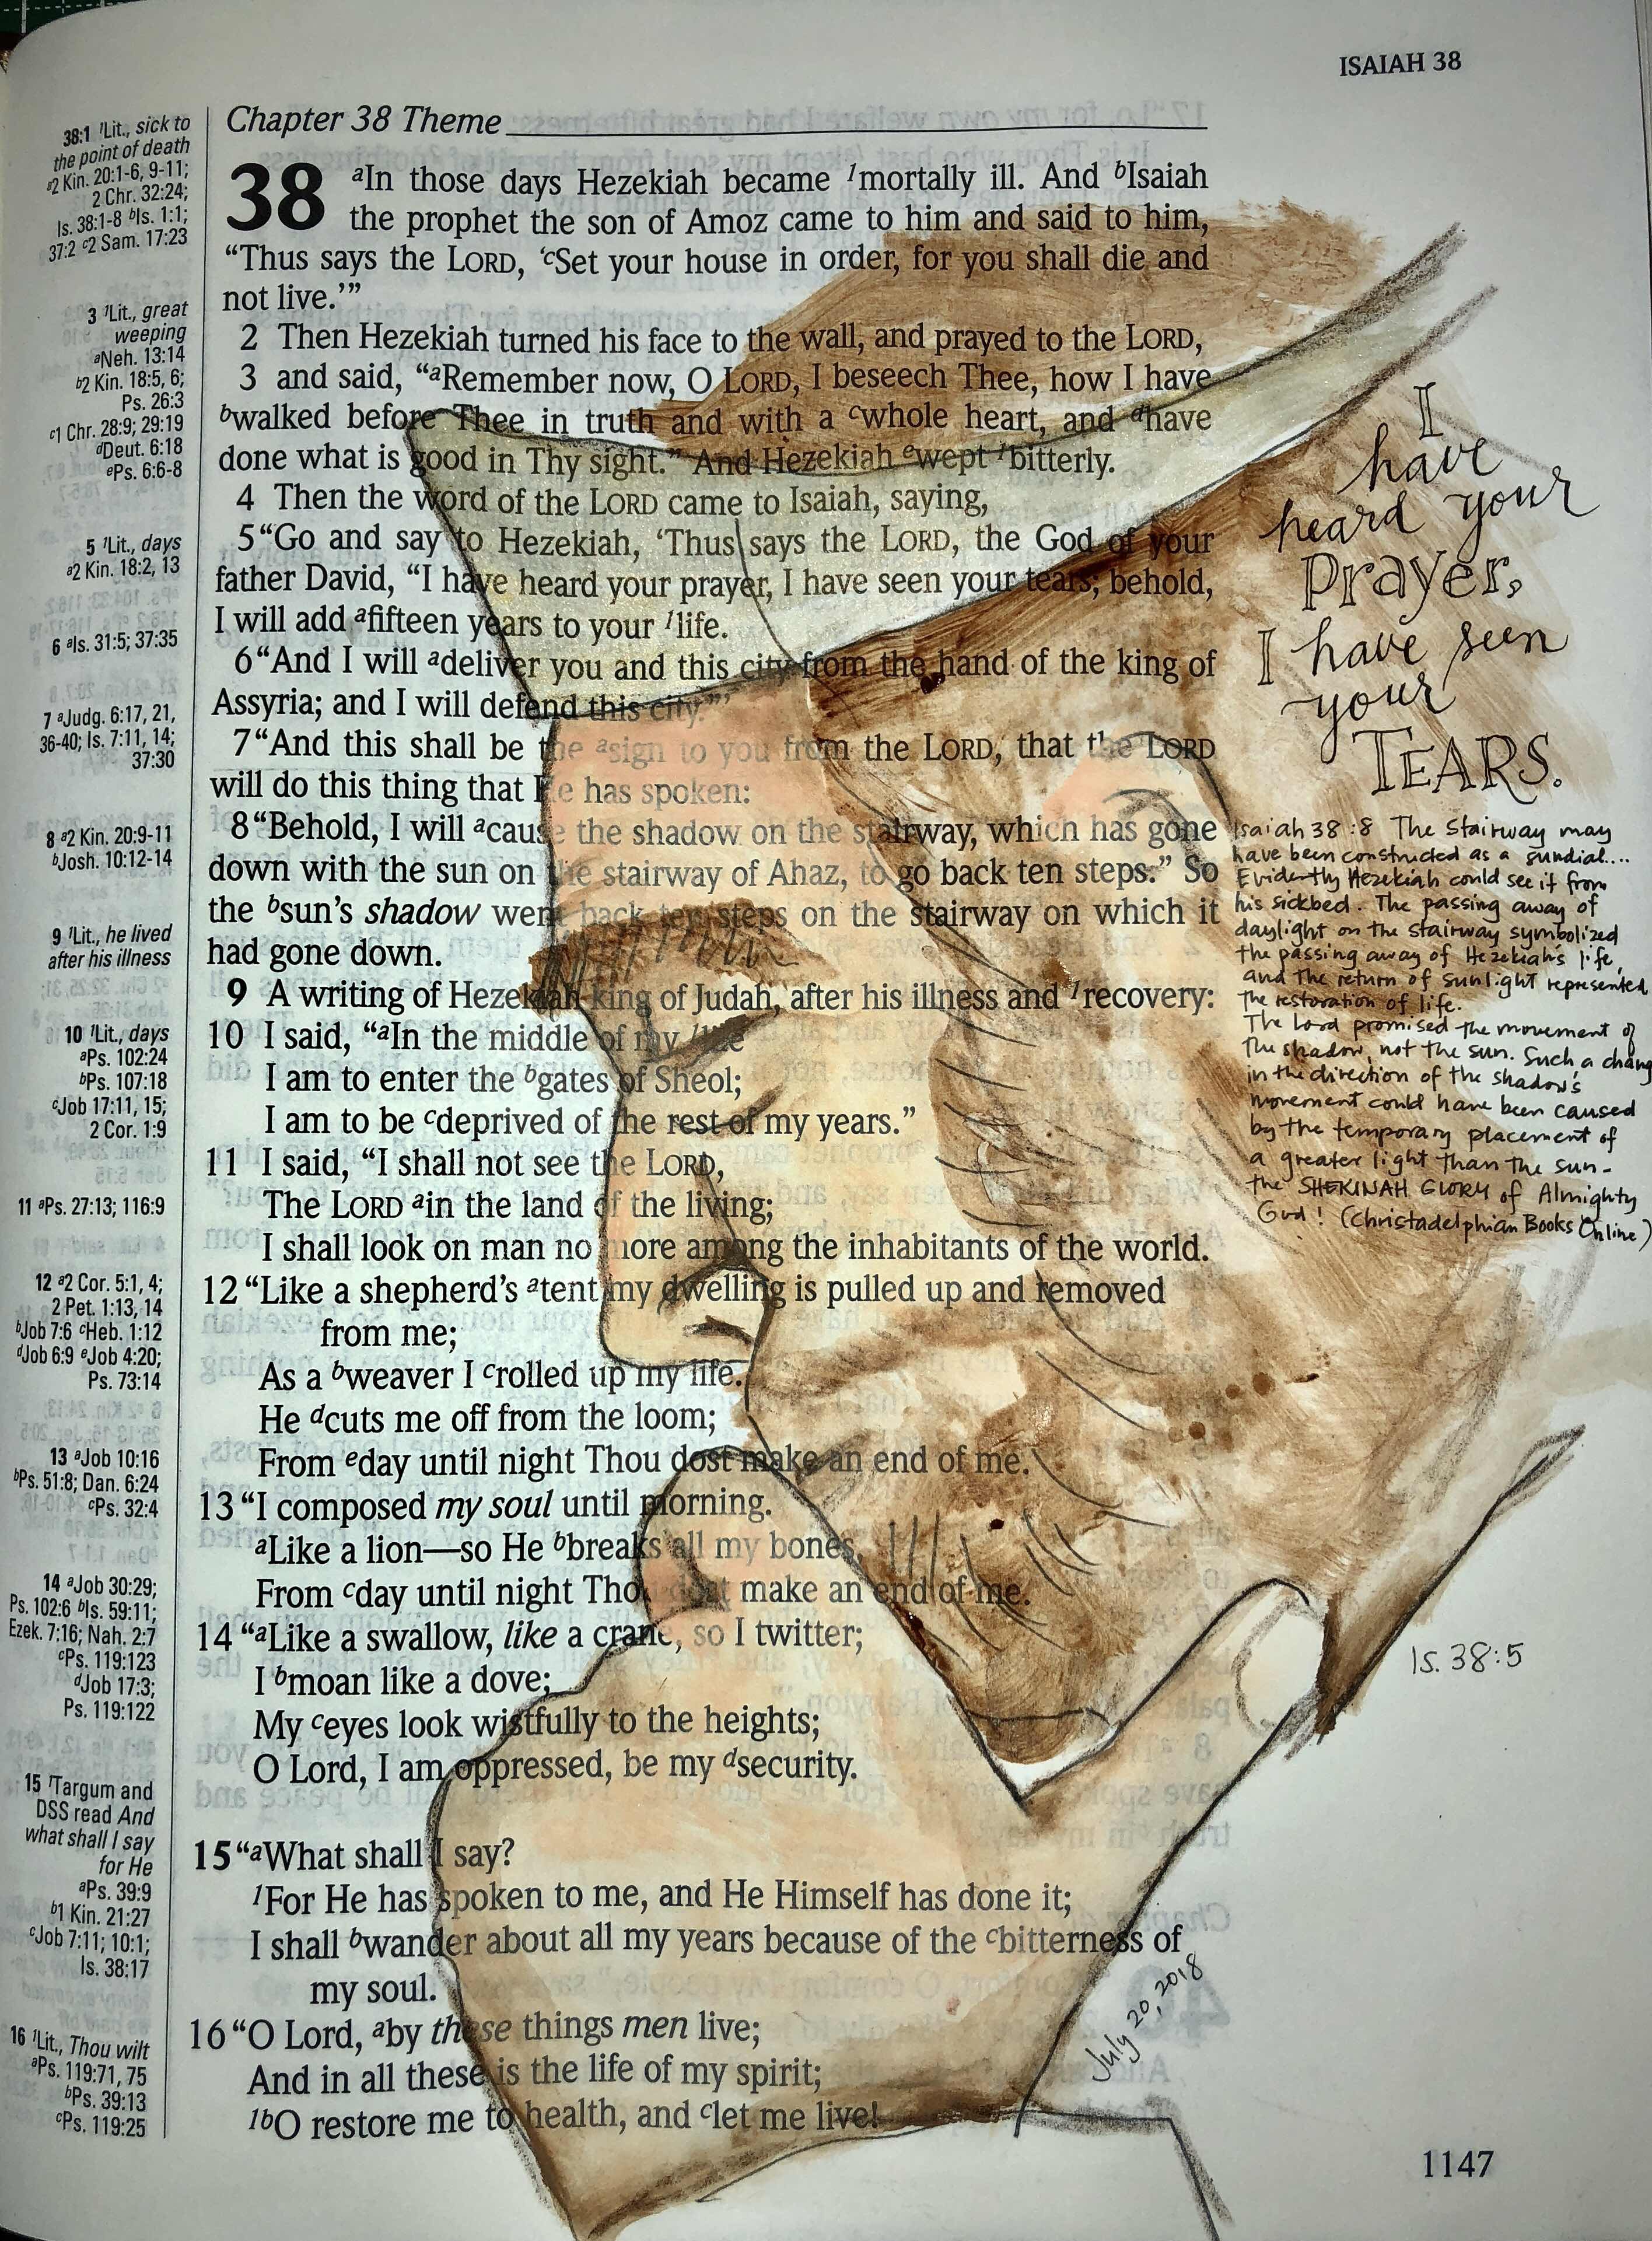 ISAIAH 38
38:1 1Lit., sick to
the point of death
a2 Kin. 20:1-6, 9-11;
2 Chr. 32:24;
Is. 38:1-8 bIs. 1:1;
37:2 c2 Sam. 17:23
3 1Lit., great
weeping
aNeh. 13:14
b2 Kin. 18:5, 6;
Ps. 26:3
c1 Chr. 28:9; 29:19
dDeut. 6:18
ePs. 6:6-8
5 1Lit., days
a2 Kin. 18:2, 13
6 aIs. 31:5; 37:35
7 aJudg. 6:17, 21,
36-40; Is. 7:11, 14;
37:30
8 a2 Kin. 20:9-11
bJosh. 10:12-14
9 1Lit., he lived
after his illness
10 1Lit., days
aPs. 102:24
bPs. 107:18
cJob 17:11, 15;
2 Cor. 1:9
11 aPs. 27:13; 116:9
12 a2 Cor. 5:1, 4;
2 Pet. 1:13, 14
bJob 7:6 cHeb. 1:12
dJob 6:9 eJob 4:20;
Ps. 73:14
13 aJob 10:16
bPs. 51:8; Dan. 6:24
cPs. 32:4
14 aJob 30:29;
Ps. 102:6 bIs. 59:11;
Ezek. 7:16; Nah. 2:7
cPs. 119:123
dJob 17:3;
Ps. 119:122
15 1Targum and
DSS read And
what shall I say
for He
aPs. 39:9
b1 Kin. 21:27
cJob 7:11; 10:1;
Is. 38:17
16 1Lit., Thou wilt
aPs. 119:71, 75
bPs. 39:13
cPs. 119:25
Chapter 38 Theme
38 aIn those days Hezekiah became 1mortally ill. And bIsaiah
the prophet the son of Amoz came to him and said to him,
“Thus says the LORD, ‘cSet your house in order, for you shall die and
not live.’”
2 Then Hezekiah turned his face to the wall, and prayed to the LORD,
3 and said, “aRemember now, O LORD, I beseech Thee, how I have
bwalked before Thee in truth and with a cwhole heart, and dhave
done what is good in Thy sight.” And Hezekiah ewept 1bitterly.
4 Then the word of the LORD came to Isaiah, saying,
5 “Go and say to Hezekiah, ‘Thus says the LORD, the God of your
father David, “I have heard your prayer, I have seen your tears; behold,
I will add afifteen years to your 1life.
6 “And I will adeliver you and this city from the hand of the king of
Assyria; and I will defend this city.”’
7 “And this shall be the asign to you from the LORD, that the LORD
will do this thing that He has spoken:
8 “Behold, I will acause the shadow on the stairway, which has gone
down with the sun on the stairway of Ahaz, to go back ten steps.” So
the bsun’s shadow went back ten steps on the stairway on which it
had gone down.
9 A writing of Hezekiah king of Judah, after his illness and 1recovery:
10 I said, “aIn the middle of my 1life
I am to enter the bgates of Sheol;
I am to be cdeprived of the rest of my years.”
11 I said, “I shall not see the LORD,
The LORD ain the land of the living;
I shall look on man no more among the inhabitants of the world.
12 “Like a shepherd’s atent my dwelling is pulled up and removed
from me;
As a bweaver I crolled up my life.
He dcuts me off from the loom;
From eday until night Thou dost make an end of me.
13 “I composed my soul until morning.
aLike a lion—so He bbreaks all my bones,
From cday until night Thou dost make an end of me.
14 “aLike a swallow, like a crane, so I twitter;
I bmoan like a dove;
My ceyes look wistfully to the heights;
O Lord, I am oppressed, be my dsecurity.
15 “aWhat shall I say?
1For He has spoken to me, and He Himself has done it;
I shall bwander about all my years because of the cbitterness of
my soul.
16 “O Lord, aby these things men live;
And in all these is the life of my spirit;
1bO restore me to health, and clet me live!
I
have
heard your
Prayer,
I have seen
your
TEARS.
Isaiah 38:8 The Stairway may
have been constructed as a sundial....
Evidently Hezekiah could see it from
his sickbed. The passing away of
daylight on the stairway symbolized
the passing away of Hezekiah's life,
and the return of sunlight represented
the restoration of life.
The Lord promised the movement of
the shadow, not the sun. Such a chang
in the direction of the shadow's
movement could have been caused
by the temporary placement of
a greater light than the sun -
the SHEKINAH GLORY of Almighty
God! (Christadelphian Books Online)
Is. 38:5
July 20, 2018
1147